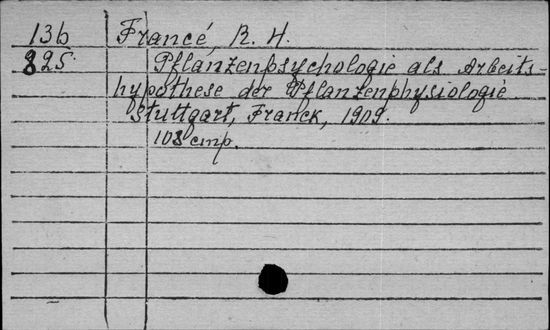 13b Francé, R. H.
825. Pflanzenpsychologie als Arbeits-
hypothese der Pflanzenphysiologie
Stuttgart, Franck, 1909.
108 cmp.